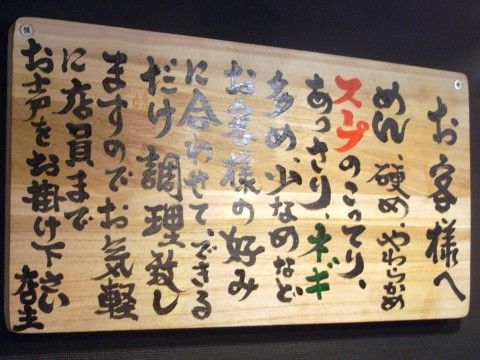 お客様へ
めん、硬め、やわらかめ
スープのこってり、
あっさり、ネギ
多め、少なめなど
お客様の好み
に合わせて、できる
だけ調理致し
ますのでお気軽
に店員まで
お声をお掛け下さい
店主